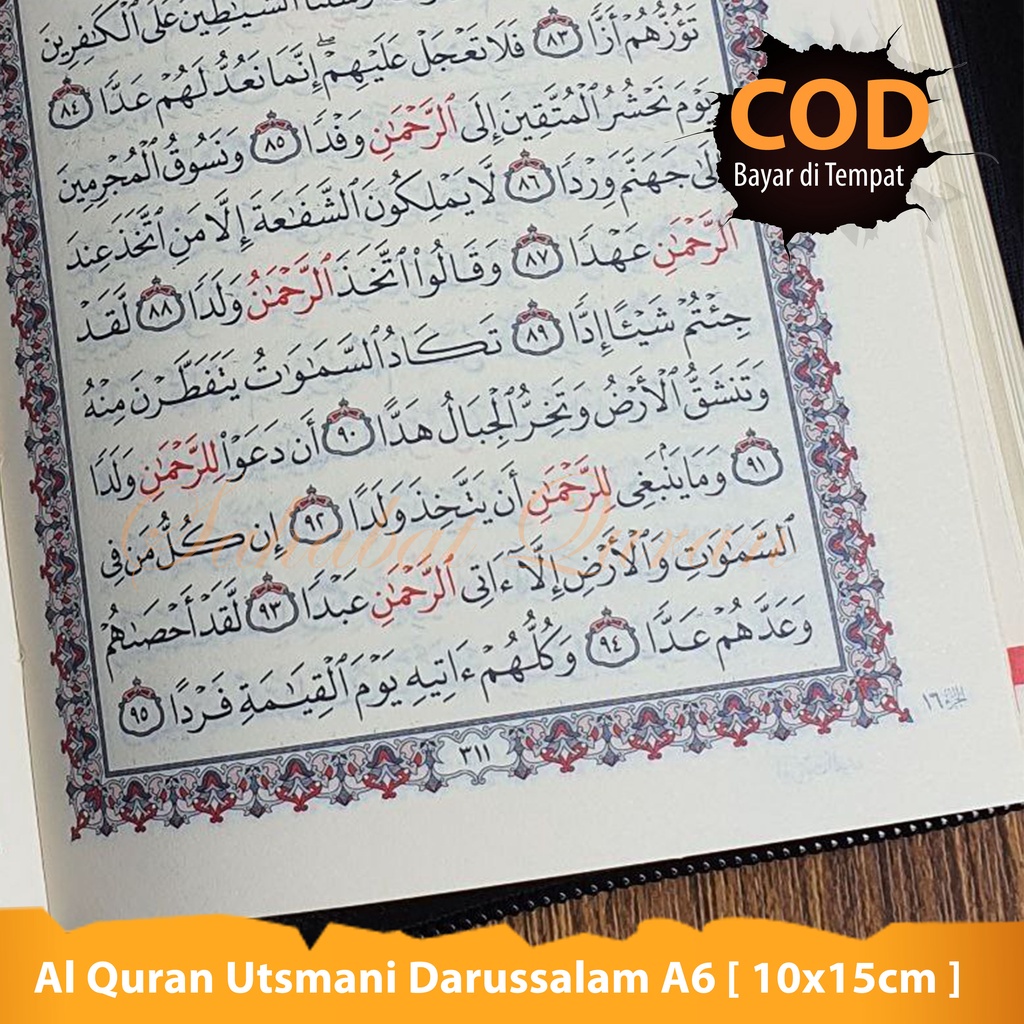 الشَّيَٰطِينَ عَلَى ٱلْكَٰفِرِينَ
تَؤُزُّهُمْ أَزًّا ٨٣ فَلَا تَعْجَلْ عَلَيْهِمْ ۖ إِنَّمَا نَعُدُّ لَهُمْ عَدًّا ٨٤
يَوْمَ نَحْشُرُ ٱلْمُتَّقِينَ إِلَى ٱلرَّحْمَٰنِ وَفْدًا ٨٥ وَنَسُوقُ ٱلْمُجْرِمِينَ
إِلَىٰ جَهَنَّمَ وِرْدًا ٨٦ لَّا يَمْلِكُونَ ٱلشَّفَٰعَةَ إِلَّا مَنِ ٱتَّخَذَ عِندَ
ٱلرَّحْمَٰنِ عَهْدًا ٨٧ وَقَالُوا۟ ٱتَّخَذَ ٱلرَّحْمَٰنُ وَلَدًا ٨٨ لَّقَدْ
جِئْتُمْ شَيْـًٔا إِدًّا ٨٩ تَكَادُ ٱلسَّمَٰوَٰتُ يَتَفَطَّرْنَ مِنْهُ
وَتَنشَقُّ ٱلْأَرْضُ وَتَخِرُّ ٱلْجِبَالُ هَدًّا ٩٠ أَن دَعَوْا۟ لِلرَّحْمَٰنِ وَلَدًا
٩١ وَمَا يَنۢبَغِى لِلرَّحْمَٰنِ أَن يَتَّخِذَ وَلَدًا ٩٢ إِن كُلُّ مَن فِى
ٱلسَّمَٰوَٰتِ وَٱلْأَرْضِ إِلَّآ ءَاتِى ٱلرَّحْمَٰنِ عَبْدًا ٩٣ لَّقَدْ أَحْصَىٰهُمْ
وَعَدَّهُمْ عَدًّا ٩٤ وَكُلُّهُمْ ءَاتِيهِ يَوْمَ ٱلْقِيَٰمَةِ فَرْدًا ٩٥
٣١١
الجزء ١٦
COD
Bayar di Tempat
Al Quran Utsmani Darussalam A6 [ 10x15cm ]